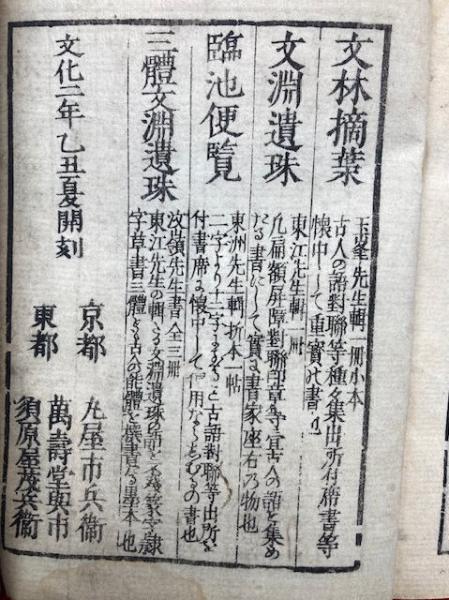 文林摘葉
玉峯先生輯一冊小本
古人の語對聯等種々集出所付席書等
懐中して重寳の書也
文淵遺珠
東江先生輯一冊
凡扁額屏障對聯印章等ニ宜古人の語を集め
たる書にして實に書家座右の物也
臨池便覧
東洲先生輯折本一帖
二字より十二字まて古語對聯等出所を
付書席に懐中して作用ならしむるの書也
三體文淵遺珠
汶嶺先生書全三冊
東江先生の輯る文淵遺珠の語を不殘篆字隷
字草書三體とも古人の能體を集書たる墨本也
文化二年乙丑夏開刻
京都 丸屋市兵衞
萬壽堂與市
東都 須原屋茂兵衞